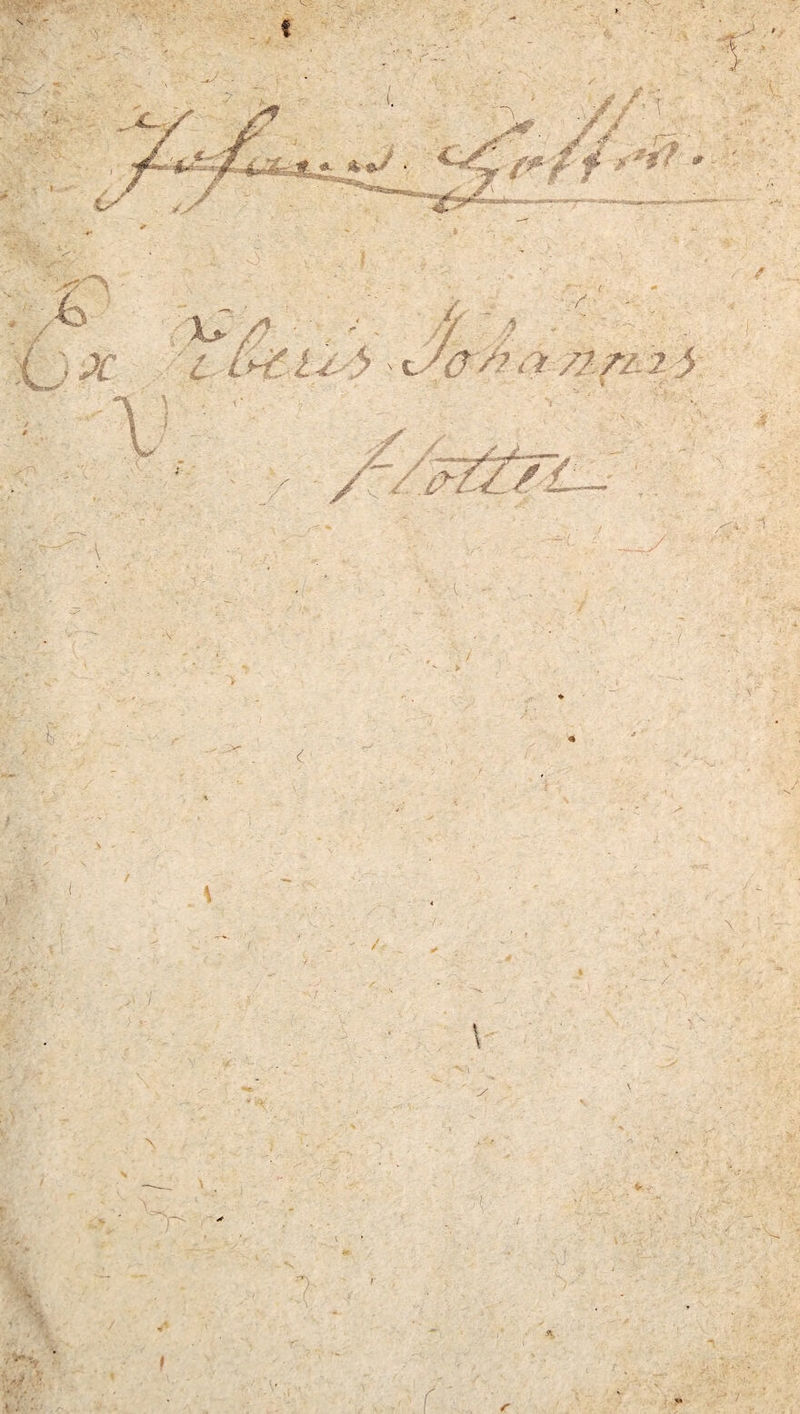 Johann Hotter.
Ex Liberis Johannis
Hotter